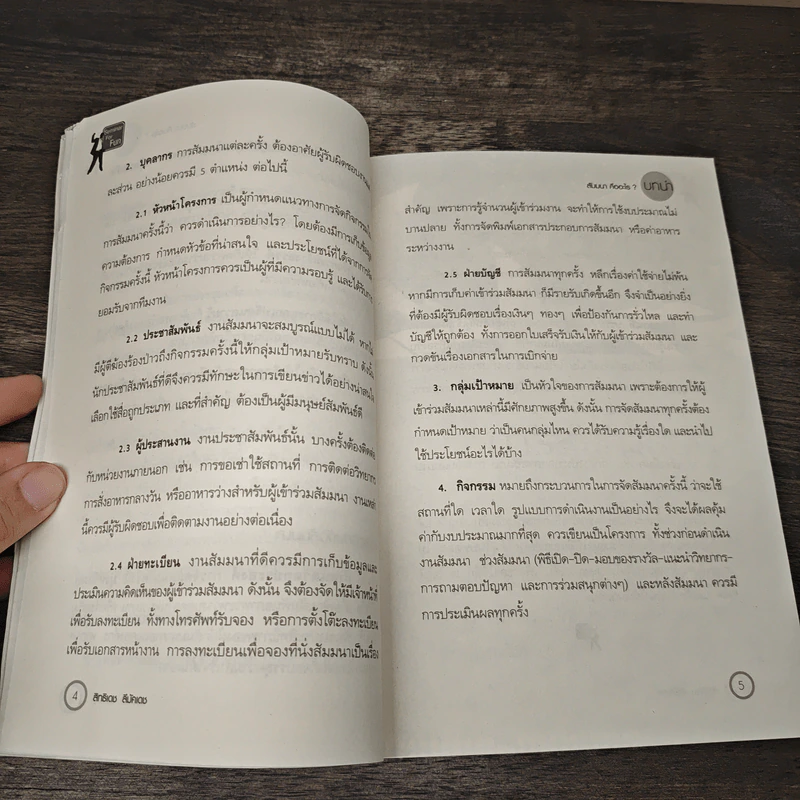 Seminar
For
Fun
2. บุคลากร การสัมมนาแต่ละครั้ง ต้องอาศัยผู้รับผิดชอบงานแต่
ละส่วน อย่างน้อยควรมี 5 ตำแหน่ง ต่อไปนี้
2.1 หัวหน้าโครงการ เป็นผู้กำหนดแนวทางการจัดกิจกรรมใน
การสัมมนาครั้งนี้ว่า ควรดำเนินการอย่างไร? โดยต้องมีการเก็บข้อมูล
ความต้องการ กำหนดหัวข้อที่น่าสนใจ และประโยชน์ที่ได้จากการจัด
กิจกรรมครั้งนี้ หัวหน้าโครงการควรเป็นผู้ที่มีความรอบรู้ และได้รับการ
ยอมรับจากทีมงาน
2.2 ประชาสัมพันธ์ งานสัมมนาจะสมบูรณ์แบบไม่ได้ หากไม่
มีผู้ตีฆ้องร้องป่าวถึงกิจกรรมครั้งนี้ให้กลุ่มเป้าหมายรับทราบ ดังนั้น
นักประชาสัมพันธ์ที่ดีจึงควรมีทักษะในการเขียนข่าวได้อย่างน่าสนใจ
เลือกใช้สื่อถูกประเภท และที่สำคัญ ต้องเป็นผู้มีมนุษย์สัมพันธ์ดี
2.3 ผู้ประสานงาน งานประชาสัมพันธ์นั้น บางครั้งต้องติดต่อ
กับหน่วยงานภายนอก เช่น การขอเช่าใช้สถานที่ การติดต่อวิทยากร
การสั่งอาหารกลางวัน หรืออาหารว่างสำหรับผู้เข้าร่วมสัมมนา งานเหล่า
นี้ควรมีผู้รับผิดชอบเพื่อติดตามงานอย่างต่อเนื่อง
2.4 ฝ่ายทะเบียน งานสัมมนาที่ดีควรมีการเก็บข้อมูลและ
ประเมินความคิดเห็นของผู้เข้าร่วมสัมมนา ดังนั้น จึงต้องจัดให้มีเจ้าหน้าที่
เพื่อรับลงทะเบียน ทั้งทางโทรศัพท์รับจอง หรือการตั้งโต๊ะลงทะเบียน
เพื่อรับเอกสารหน้างาน การลงทะเบียนเพื่อจองที่นั่งสัมมนาเป็นเรื่อง
4 สิทธิเดช ลีมัคเดช
สัมมนา คืออะไร ? บทนำ
สำคัญ เพราะการรู้จำนวนผู้เข้าร่วมงาน จะทำให้การใช้งบประมาณไม่
บานปลาย ทั้งการจัดพิมพ์เอกสารประกอบการสัมมนา หรือค่าอาหาร
ระหว่างงาน
2.5 ฝ่ายบัญชี การสัมมนาทุกครั้ง หลีกเรื่องค่าใช้จ่ายไม่พ้น
หากมีการเก็บค่าเข้าร่วมสัมมนา ก็มีรายรับเกิดขึ้นอีก จึงจำเป็นอย่างยิ่ง
ที่ต้องมีผู้รับผิดชอบเรื่องเงินๆ ทองๆ เพื่อป้องกันการรั่วไหล และทำ
บัญชีให้ถูกต้อง ทั้งการออกใบเสร็จรับเงินให้กับผู้เข้าร่วมสัมมนา และ
กวดขันเรื่องเอกสารในการเบิกจ่าย
3. กลุ่มเป้าหมาย เป็นหัวใจของการสัมมนา เพราะต้องการให้ผู้
เข้าร่วมสัมมนาเหล่านี้มีศักยภาพสูงขึ้น ดังนั้น การจัดสัมมนาทุกครั้งต้อง
กำหนดเป้าหมาย ว่าเป็นคนกลุ่มไหน ควรได้รับความรู้เรื่องใด และนำไป
ใช้ประโยชน์อะไรได้บ้าง
4. กิจกรรม หมายถึงกระบวนการในการจัดสัมมนาครั้งนี้ ว่าจะใช้
สถานที่ใด เวลาใด รูปแบบการดำเนินงานเป็นอย่างไร จึงจะได้ผลคุ้ม
ค่ากับงบประมาณมากที่สุด ควรเขียนเป็นโครงการ ทั้งช่วงก่อนดำเนิน
งานสัมมนา ช่วงสัมมนา (พิธีเปิด-ปิด-มอบของรางวัล-แนะนำวิทยากร-
การถามตอบปัญหา และการร่วมสนุกต่างๆ) และหลังสัมมนา ควรมี
การประเมินผลทุกครั้ง
5